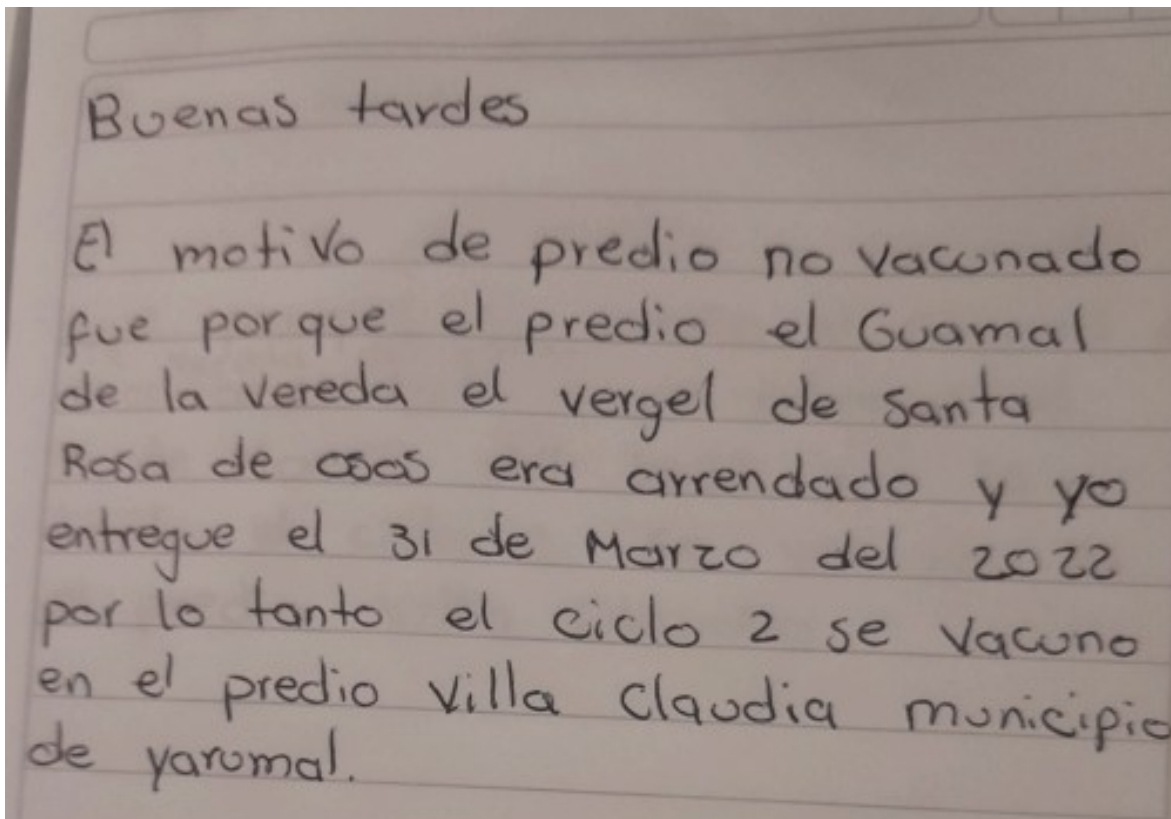 Buenas tardes
El motivo de predio no vacunado
fue por que el predio el Guamal
de la vereda el vergel de Santa
Rosa de osos era arrendado y yo
entregue el 31 de Marzo del 2022
por lo tanto el ciclo 2 se vacuno
en el predio Villa Claudia municipio
de yarumal.